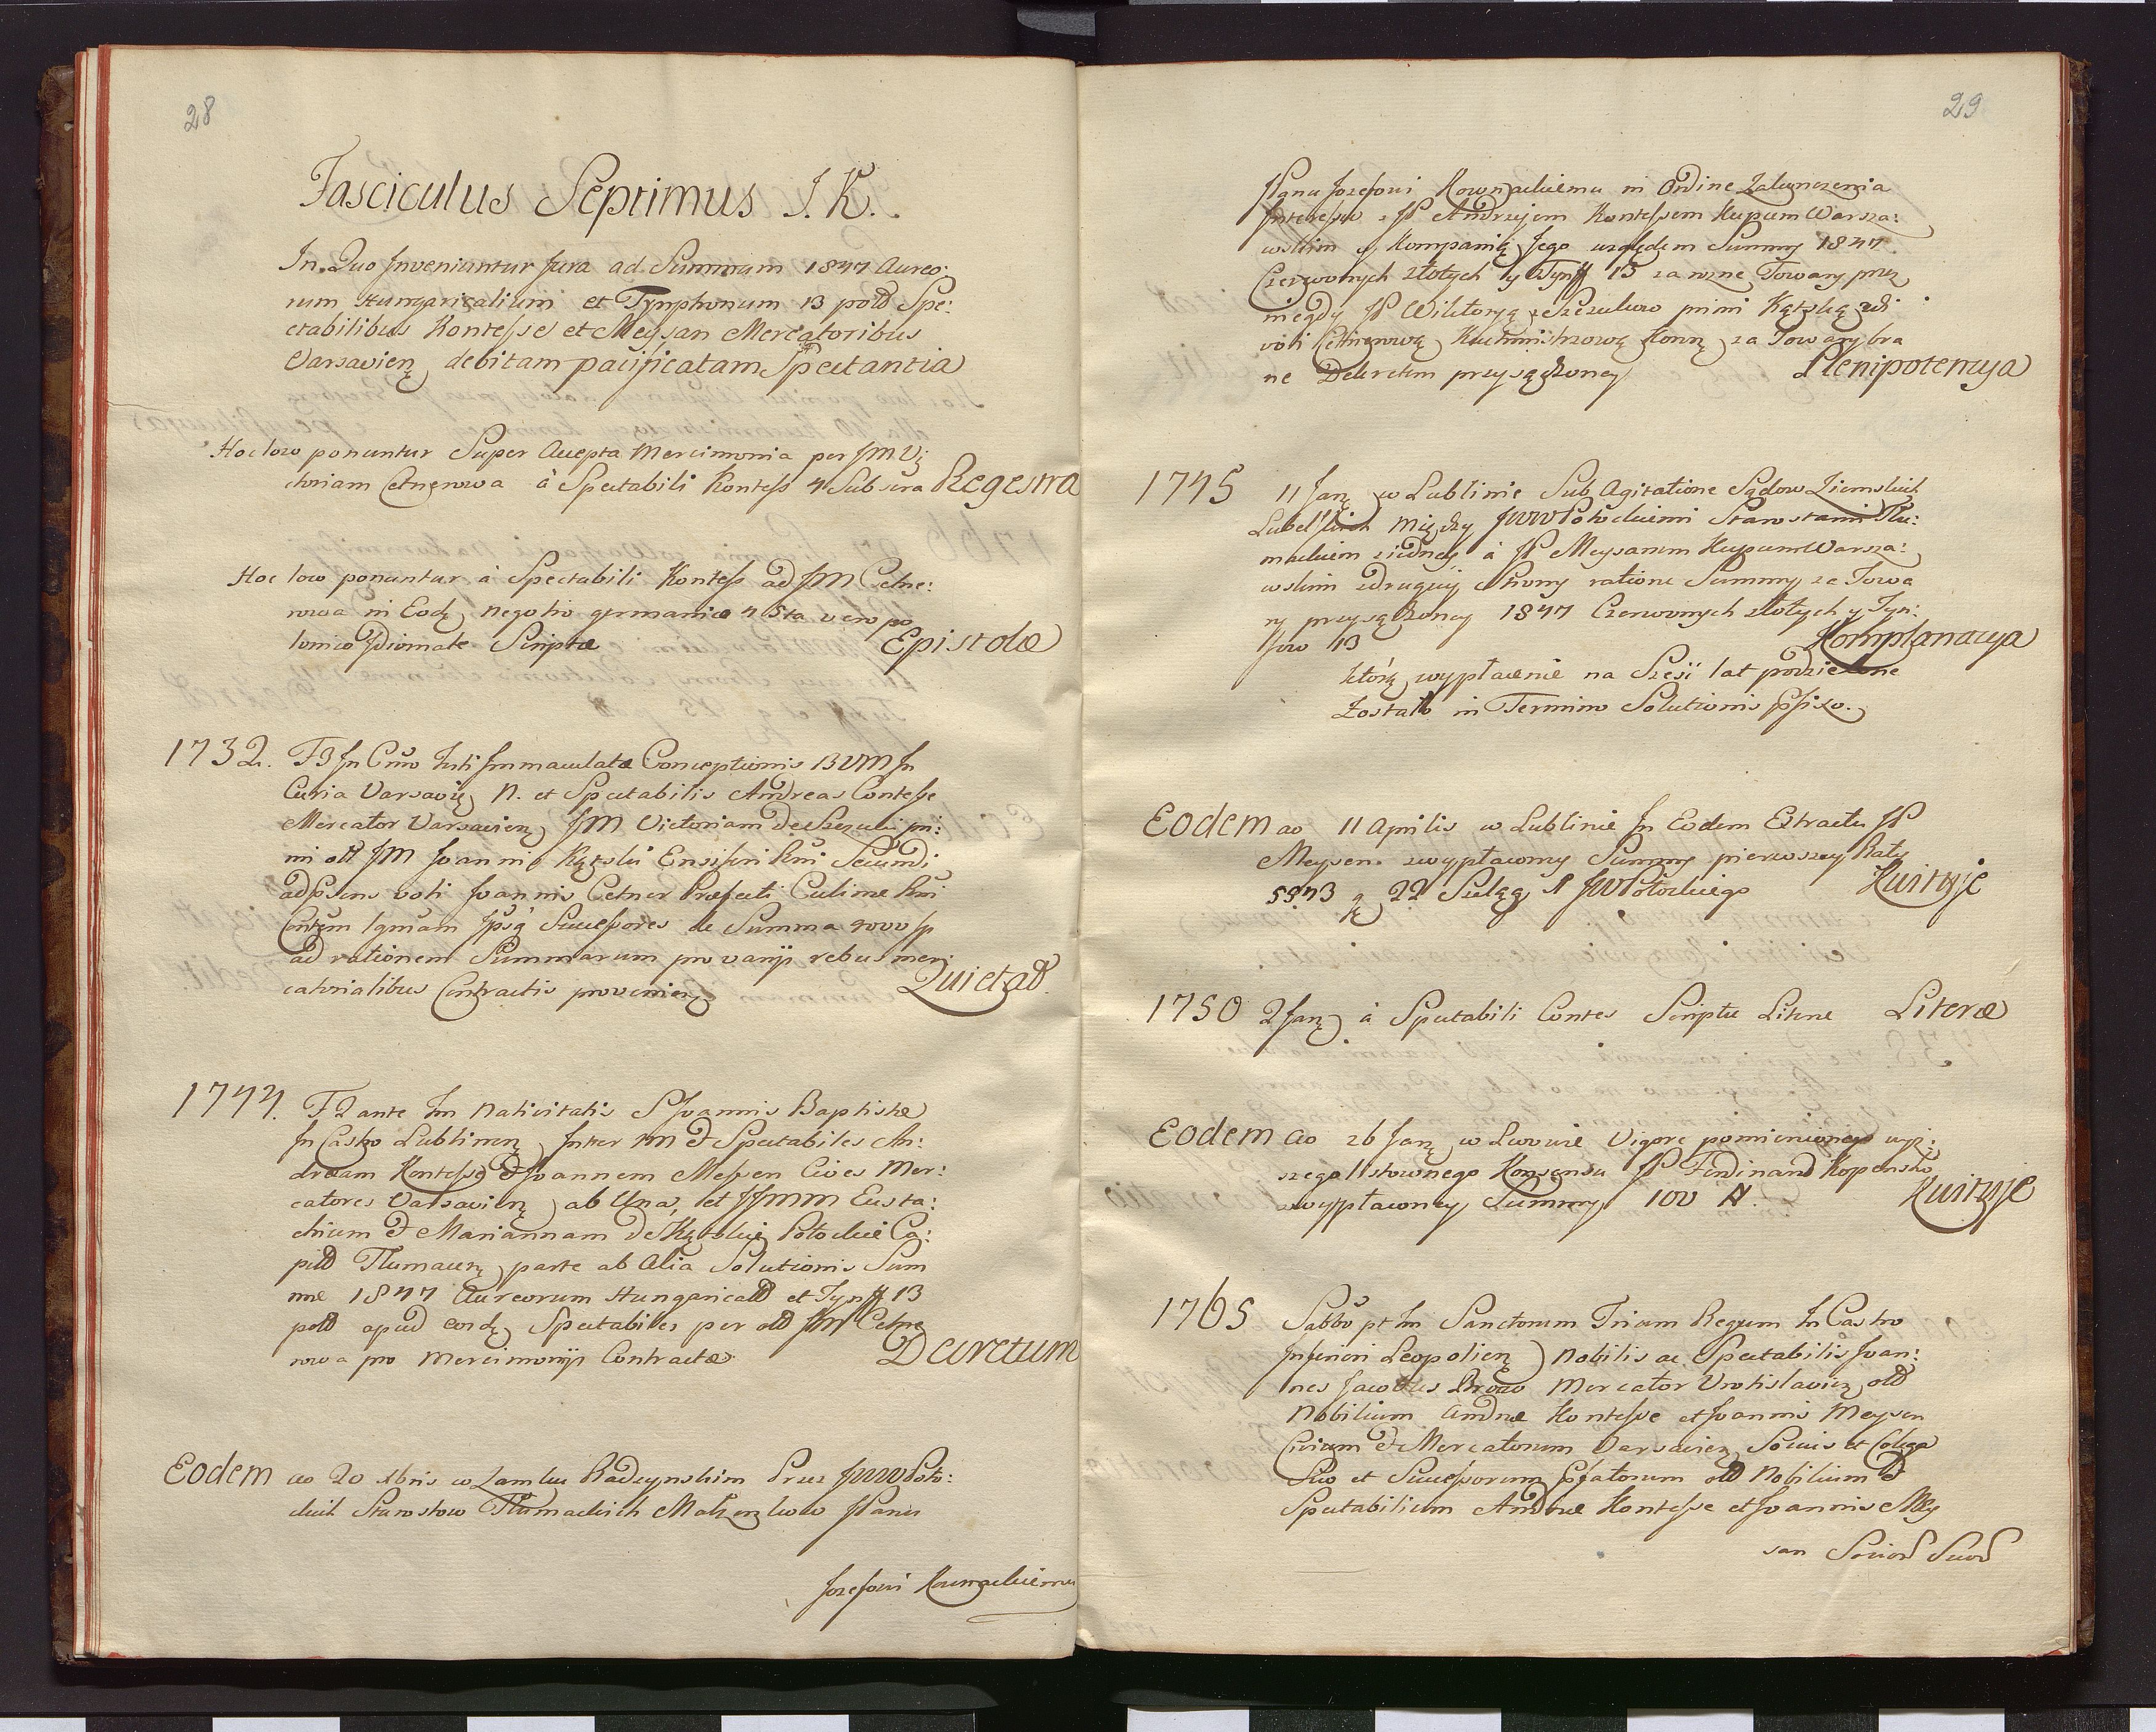 28
Fasciculus Septimus J. K.
In Quo Inveniuntur Jura ad Summam 1847 Aureo:
rum Hungaricalium et Tymphonum 13 pold Spe:
ctabilibus Kontesse et Meysan Mercatoribus
Varsavien debitam pacificatam Spectantia
Hoc loco ponuntur Super Accepta Mercimonia per JM Vi
ctoriam Cetnerowa à Spectabili Kontess 4 Subscra Regestra
Hoc loco ponuntur à Spectabili Kontess ad JM Cetne:
rowa in Eod negotio germanico 4 5ta vero po
lonico Idiomate Scriptae Epistolae
1732. F3 In Cr̃o festi Immaculatae Conceptionis BVM In
Curia Varsavie N. et Spectabilis Andreas Contesse
Mercator Varsavien JM Victoriam de Szczuki pri:
mi olt JM Joannis Kątski Ensiferi Rni Secundi
ad p̃sens voti Joannis Cetner Praefecti Culinae Rni
Conjugem Ipsiq Successores de Summa 4000 fp
ad rationem Summarum pro varijs rebus mer:
catorialibus Contractis provenien Quietatt
1744. F2 ante fm Nativitatis S Joannis Baptistae
In Castro Lublinen Inter NN et Spectabiles An:
dream Kontesse et Joannem Messen Cives Mer:
catores Varsavien ab Una, et JJMM Eusta:
chium et Mariannam de Kątskie Potockie Ca:
pitt Tlumacen parte ab Alia Solutionis Sum
mae 1847 Aureorum Hungaricall et Tynff 13
poll apud eosd Spectabiles per oll JM Cetne
rowa pro Mercimonijs Contractae Decretum
Eodem ao 20 Xbris w Zamku Radzynskim Przez JWW Poto:
ckich Starostow Tłumackich Małzonkow JPanu
Jozefowi Kownackiemu
29
JPanu Jozefowi Kownackiemu in Ordine Załonczenia
Interessu z JP Andrzejem Kontessem Kupcem Warsza:
wskim y Kompanią Jego względem Summy 1847
Czerwonych złotych y Tynff 13 za rozne Towary przez
niegdy JP Wiktoryą z Szczukow primi Kątską 2di
voti Cetnerową Kuchmistrzową Koron za Towary bra
ne Dekretem przysądzoney Plenipotencya
1745 11 Jan w Lublinie Sub Agitatione Sądow Ziemskich
Lubelskich między JWW Potockiemi Starostami Tłu:
mackiemi ziedney à JP Meysanem Kupcem Warsza:
wskim zdrugiey Strony ratione Summy za Towa
ry przysądzoney 1847 Czerwonych złotych y Tyn:
fow 13 Komplanacya
którą wypłacenie na Szesć lat podzielone
Zostało in Termino Solutionis
Eodem ao 11 Aprilis w Lublinie In Eodem Extractu JP
Meysen. zwypłaconey Summy pierwszey Raty
5543 g 22 Szeląg 1 JW Potockiego Kwituje
1750 2 Jan à Spectabili Contes Scriptae Literae Literae
Eodem ao 26 Jan w Lwowie Vigore pomienionego wyż:
szego listownego Konsensu JP Ferdinand Kopensko
zwypłaconey Summy 100 Kwituje
1765 Sabbo pt fm Sanctorum Trium Regum In Castro
Inferiori Leopolien Nobilis ac Spectabilis Joan:
nes Jacobus Mercator Vratislavien oll
Nobilium Andreae Kontesse et Joannis Meysen
Civium et Mercatorum Varsavien Sociis et Collega
Suo et Successorum p̃fatorum oll Nobilium et
Spectabilium Andreae Kontesse et Joannis Mey
san Sociorum Suorum